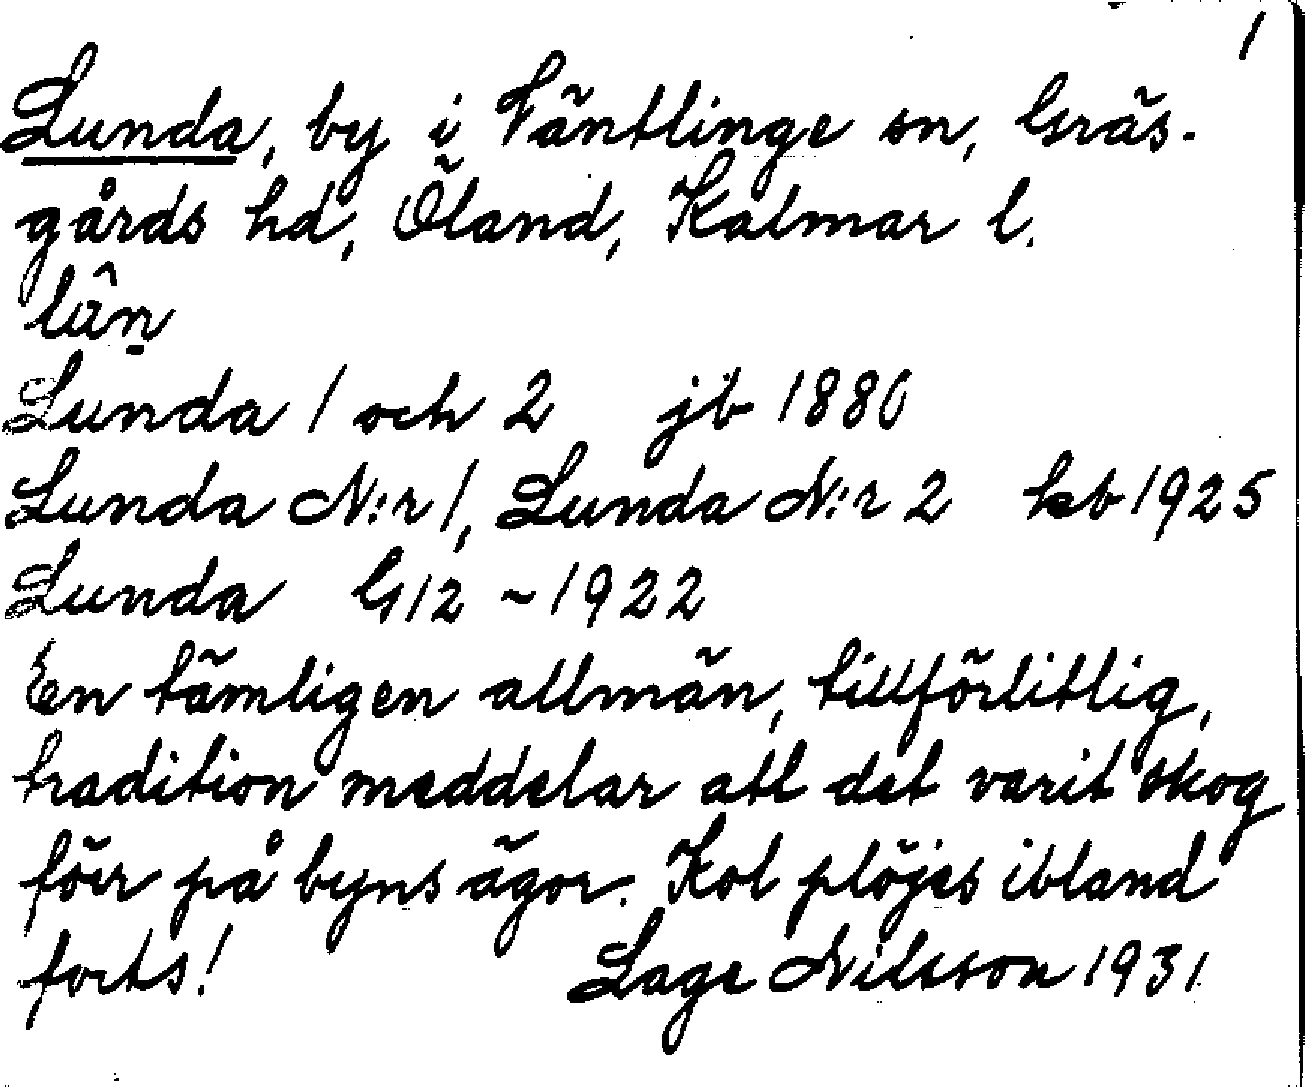 1
Lunda, by i Väntlinge sn, Gräs-
gårds hd, Öland, Kalmar l.
Lunda 1 och 2 jb 1880
Lunda N:r 1, Lunda N:r 2 kb 1925
Lunda G12 ~ 1922
En tämligen allmän, tillförlitlig,
tradition meddelar att det varit skog
förr på byns ägor. Kol plöjes ibland
forts! Lage Nilsson 1931